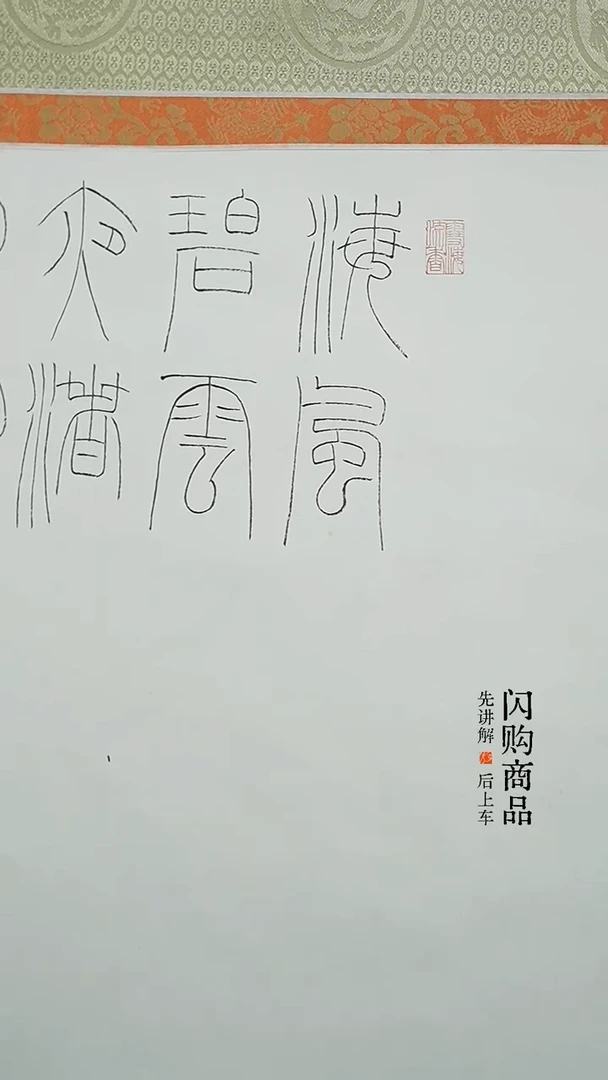 海風
碧雲
夜渚
闪购商品
先讲解 后上车